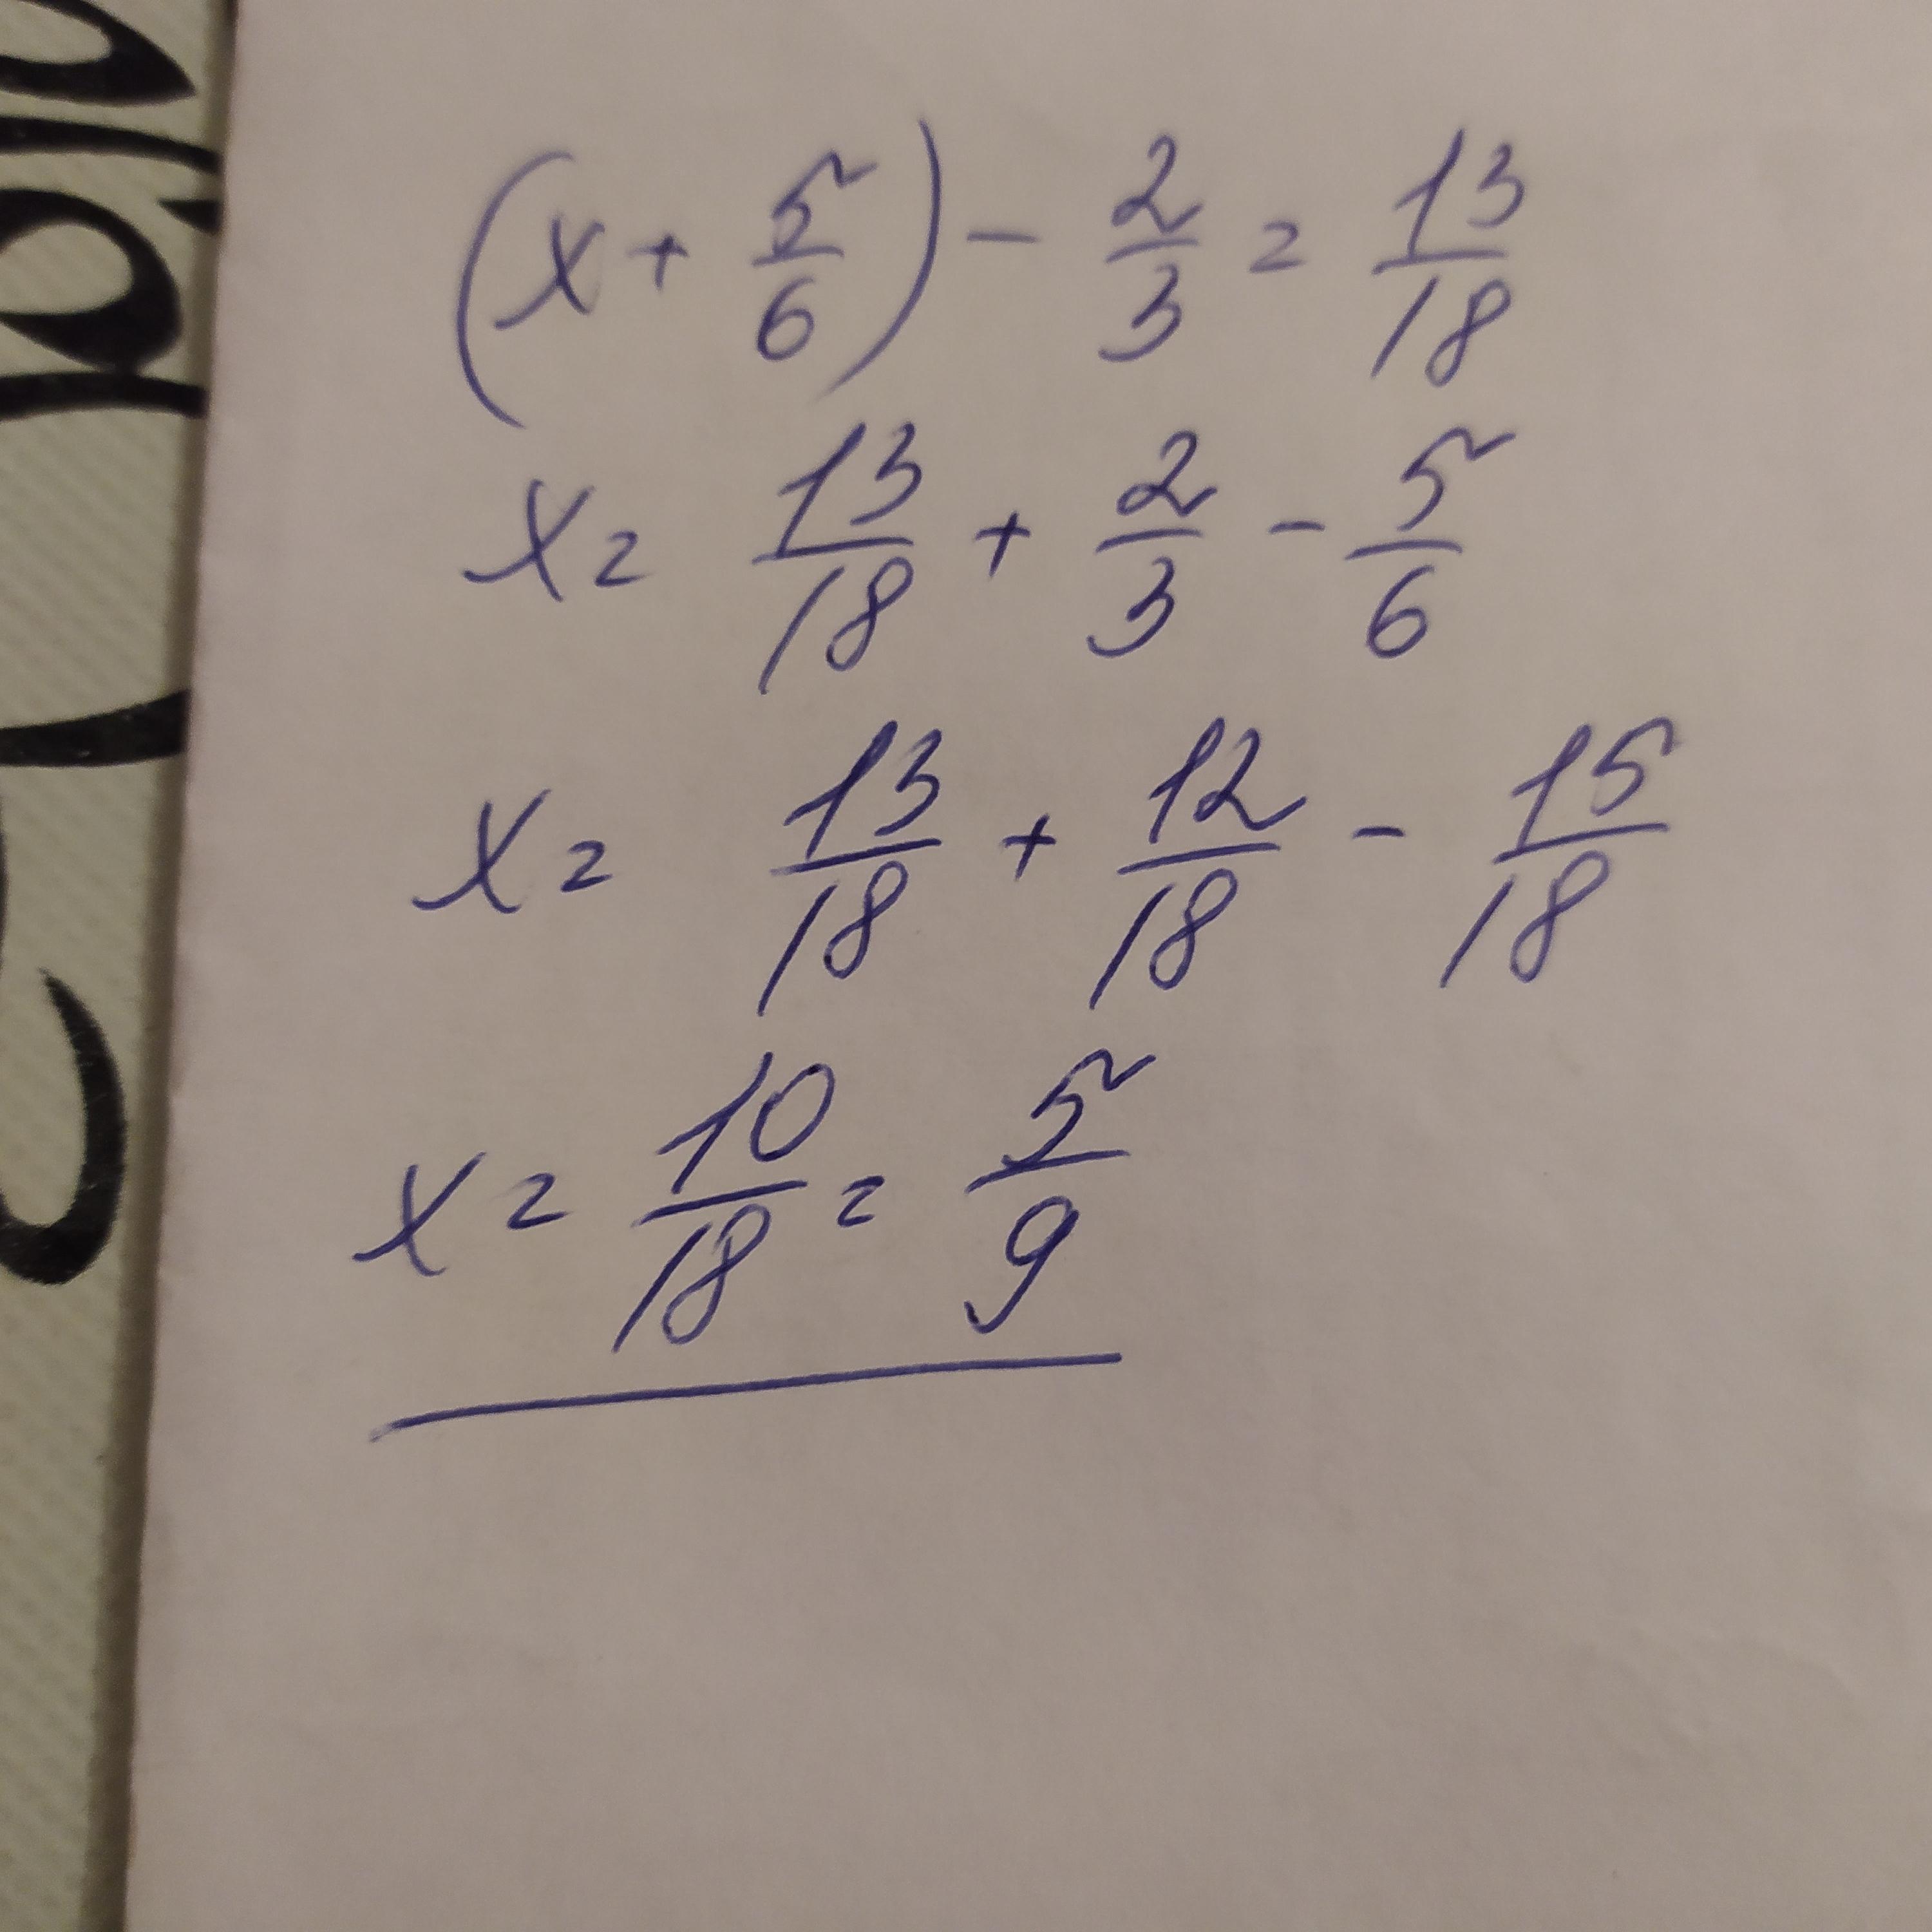 (x + 5/6) - 2/3 = 13/18
x = 13/18 + 2/3 - 5/6
x = 13/18 + 12/18 - 15/18
x = 10/18 = 5/9